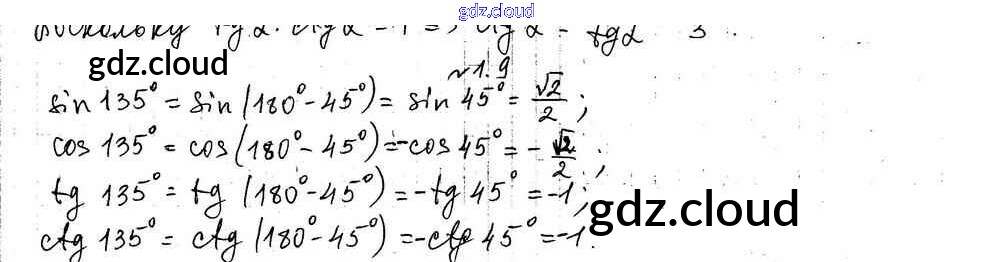 gdz.cloud
tg α · ctg α = 1 =>, ctg α =
gdz.cloud
№1.9
sin 135° = sin (180° - 45°) = sin 45° = √2/2;
cos 135° = cos (180° - 45°) = -cos 45° = - √2/2;
tg 135° = tg (180° - 45°) = -tg 45° = -1;
gdz.cloud
ctg 135° = ctg (180° - 45°) = -ctg 45° = -1.